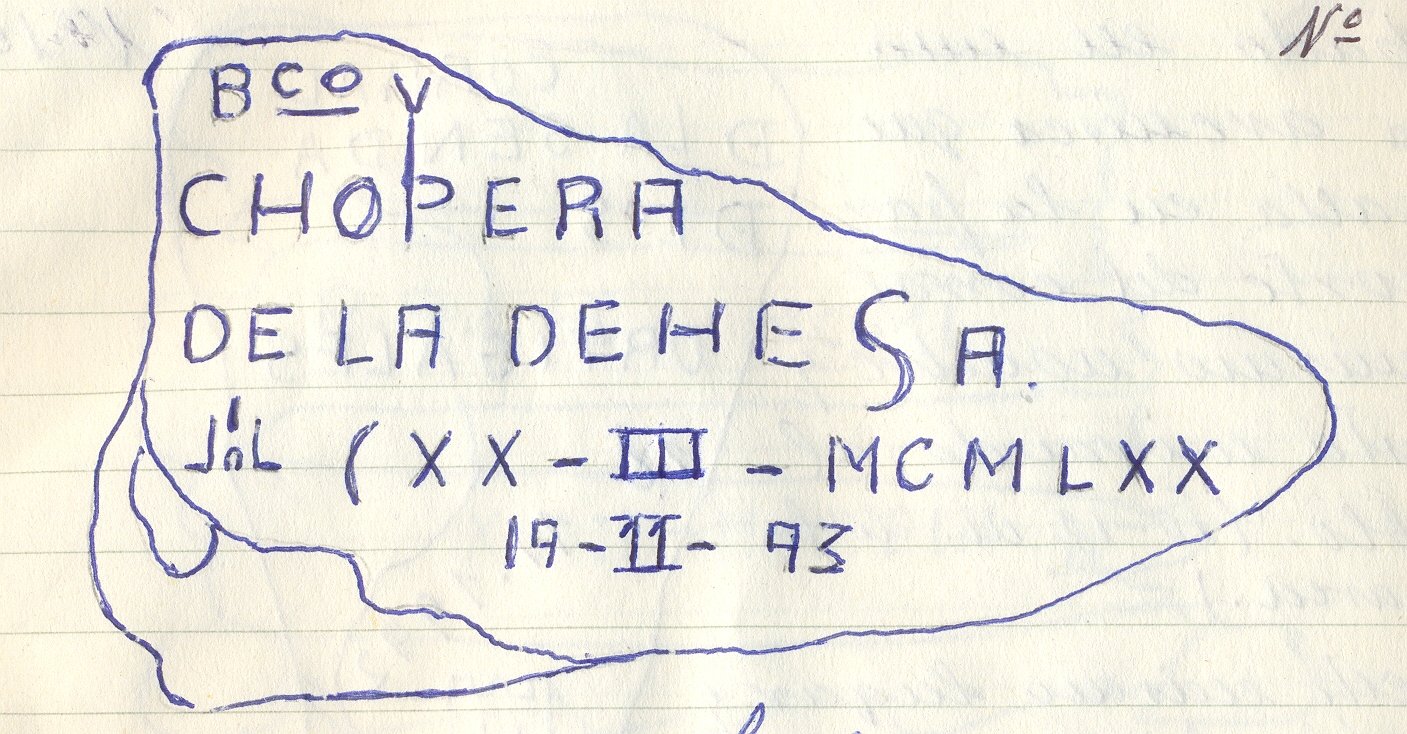 Nº
Bco Y
CHOPERA
DE LA DEHESA.
(XX-III-MCMLXX
19-II-93